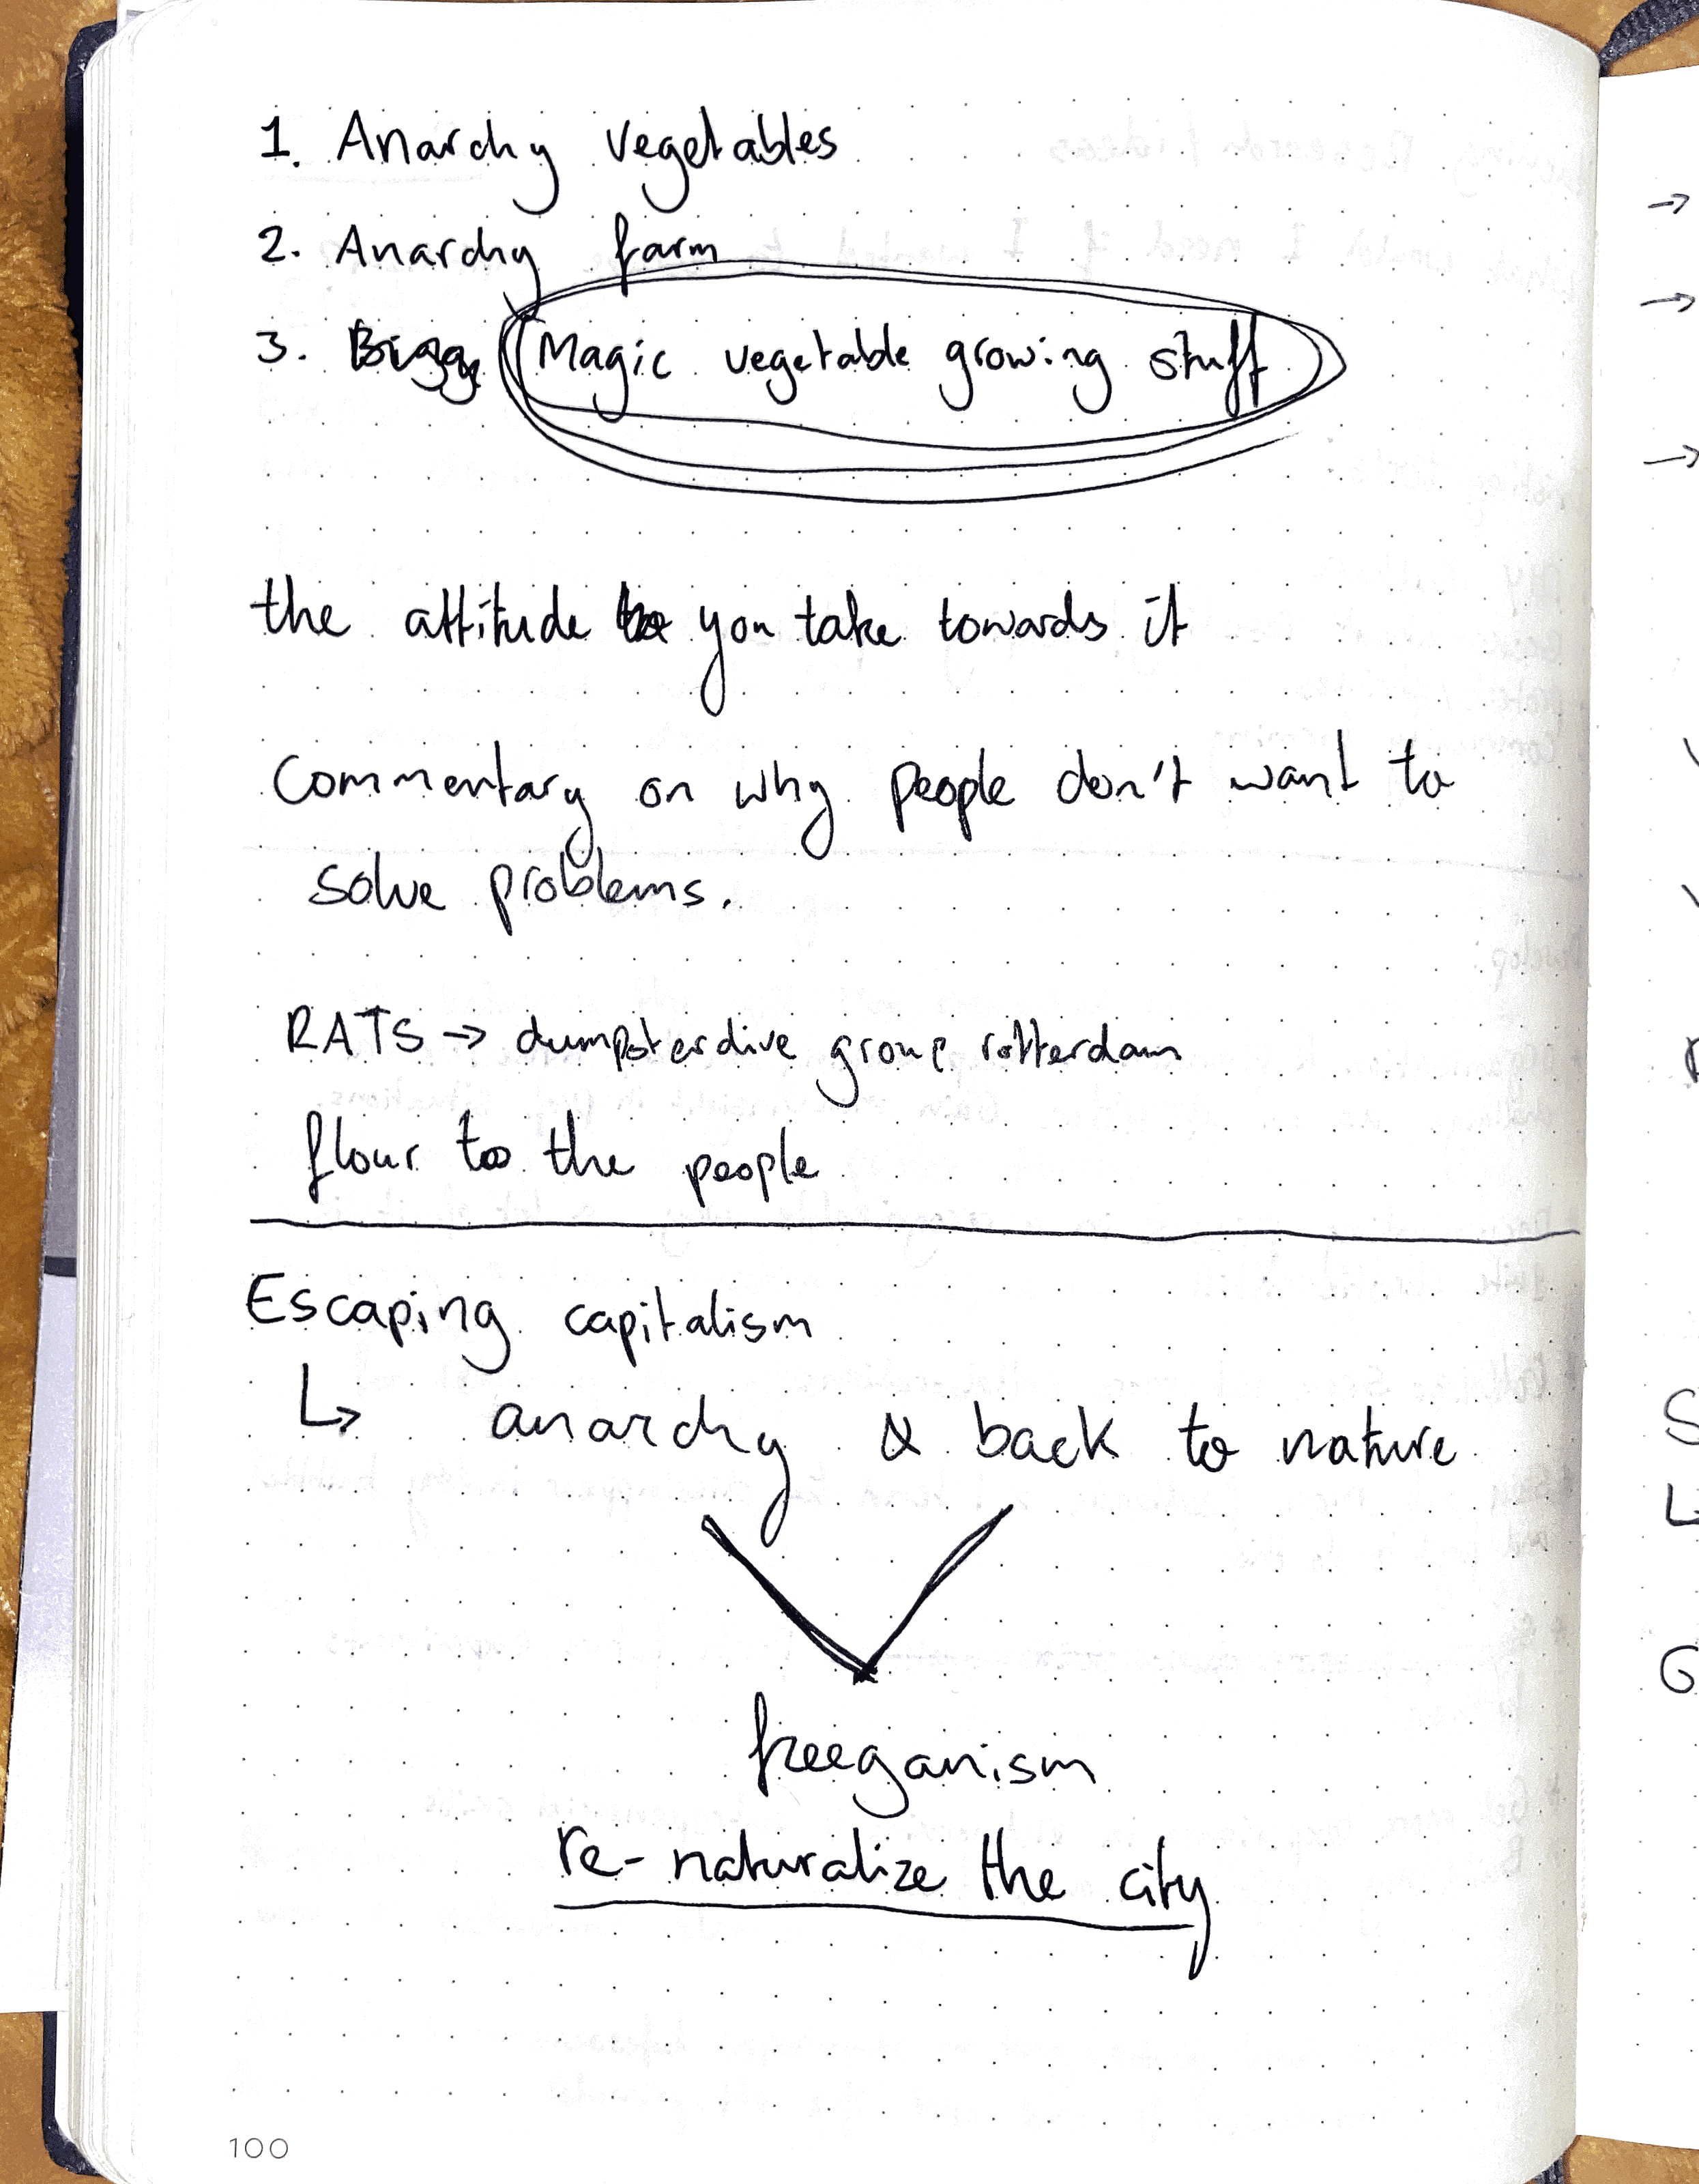 1. Anarchy vegetables
2. Anarchy farm
3. Magic vegetable growing stuff
the attitude you take towards it
Commentary on why people don't want to
solve problems.
RATS → dumpsterdive group rotterdam
flour to the people
Escaping capitalism
↳ anarchy & back to nature
freeganism
re-naturalize the city
100